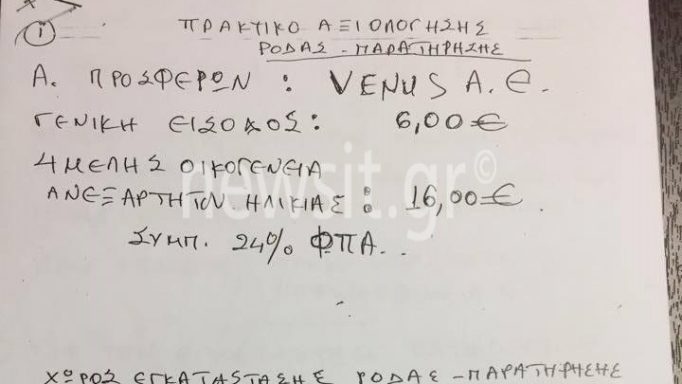 i ΠΡΑΚΤΙΚΟ ΑΞΙΟΛΟΓΗΣΗΣ
ΡΟΔΑΣ - ΠΑΡΑΤΗΡΗΣΗΣ
Α. ΠΡΟΣΦΕΡΩΝ : VENUS A.E.
ΓΕΝΙΚΗ ΕΙΣΟΔΟΣ: 6,00€
4ΜΕΛΗΣ ΟΙΚΟΓΕΝΕΙΑ
newsit.gr©
ΑΝΕΞΑΡΤΗΤΟΝ ΗΛΙΚΙΑΣ : 16,00€
ΣΥΜΠ. 24% ΦΠΑ..
ΧΩΡΟΣ ΕΓΚΑΤΑΣΤΑΣΗΣ ΡΟΔΑΣ - ΠΑΡΑΤΗΡΗΣΗΣ